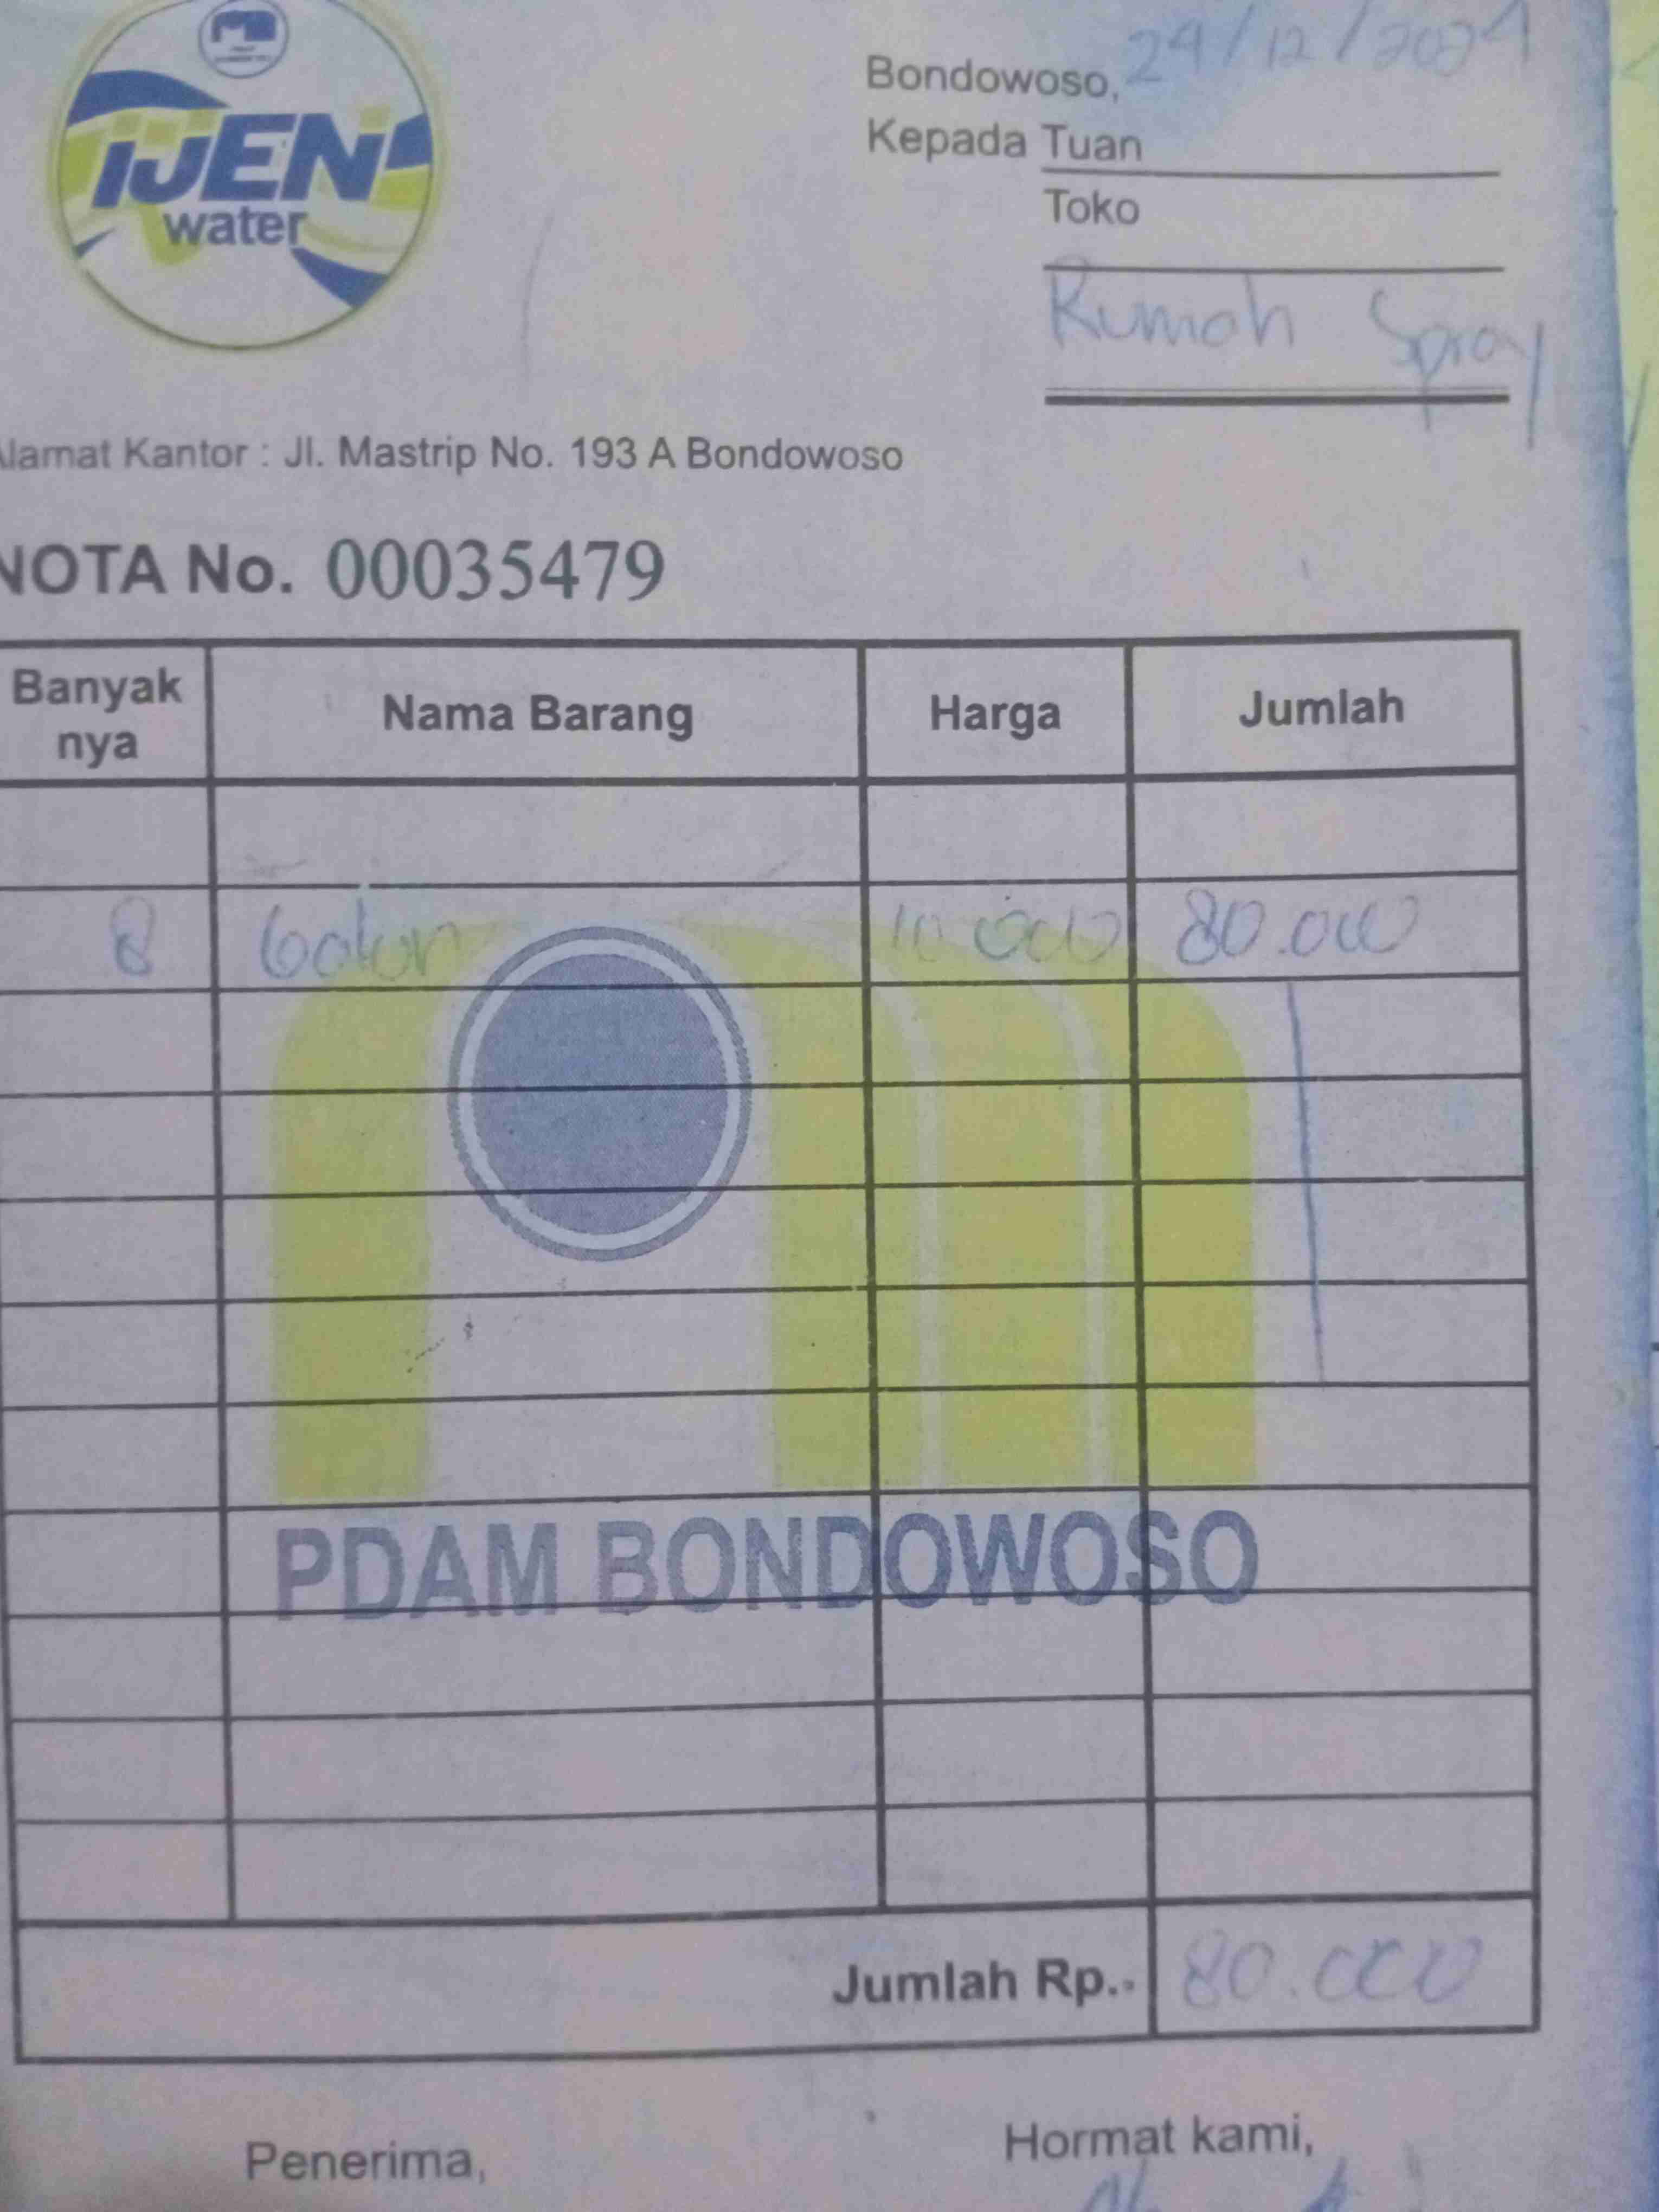 iJEN
water
Bondowoso, 24/12/2024
Kepada Tuan
Toko
Rumah Spray
Alamat Kantor : Jl. Mastrip No. 193 A Bondowoso
NOTA No. 00035479
Banyak nya Nama Barang Harga Jumlah
8 Galon 10.000 80.000
PDAM BONDOWOSO
Jumlah Rp.- 80.000
Penerima, Hormat kami,